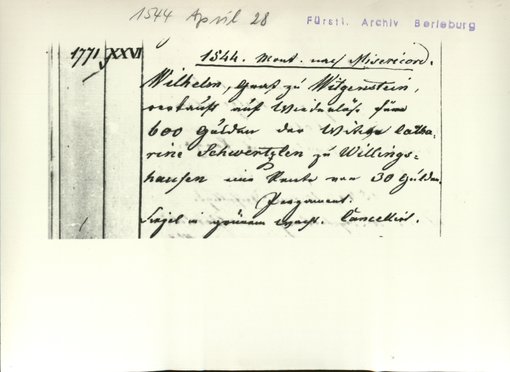 1544 April 28
Fürstl. Archiv Berleburg
1771 XXVI
1544. Mont. nach Misericord.
Wilhelm, Graf zu Witgenstein,
verkauft auf Wiederlöse für
600 Gülden der Wittwe Catha-
rine Schwertzlen zu Willings-
hausen eine Rente von 30 Gülden.
Pergament.
Siegel in grünem Wachs. Cancellirt.